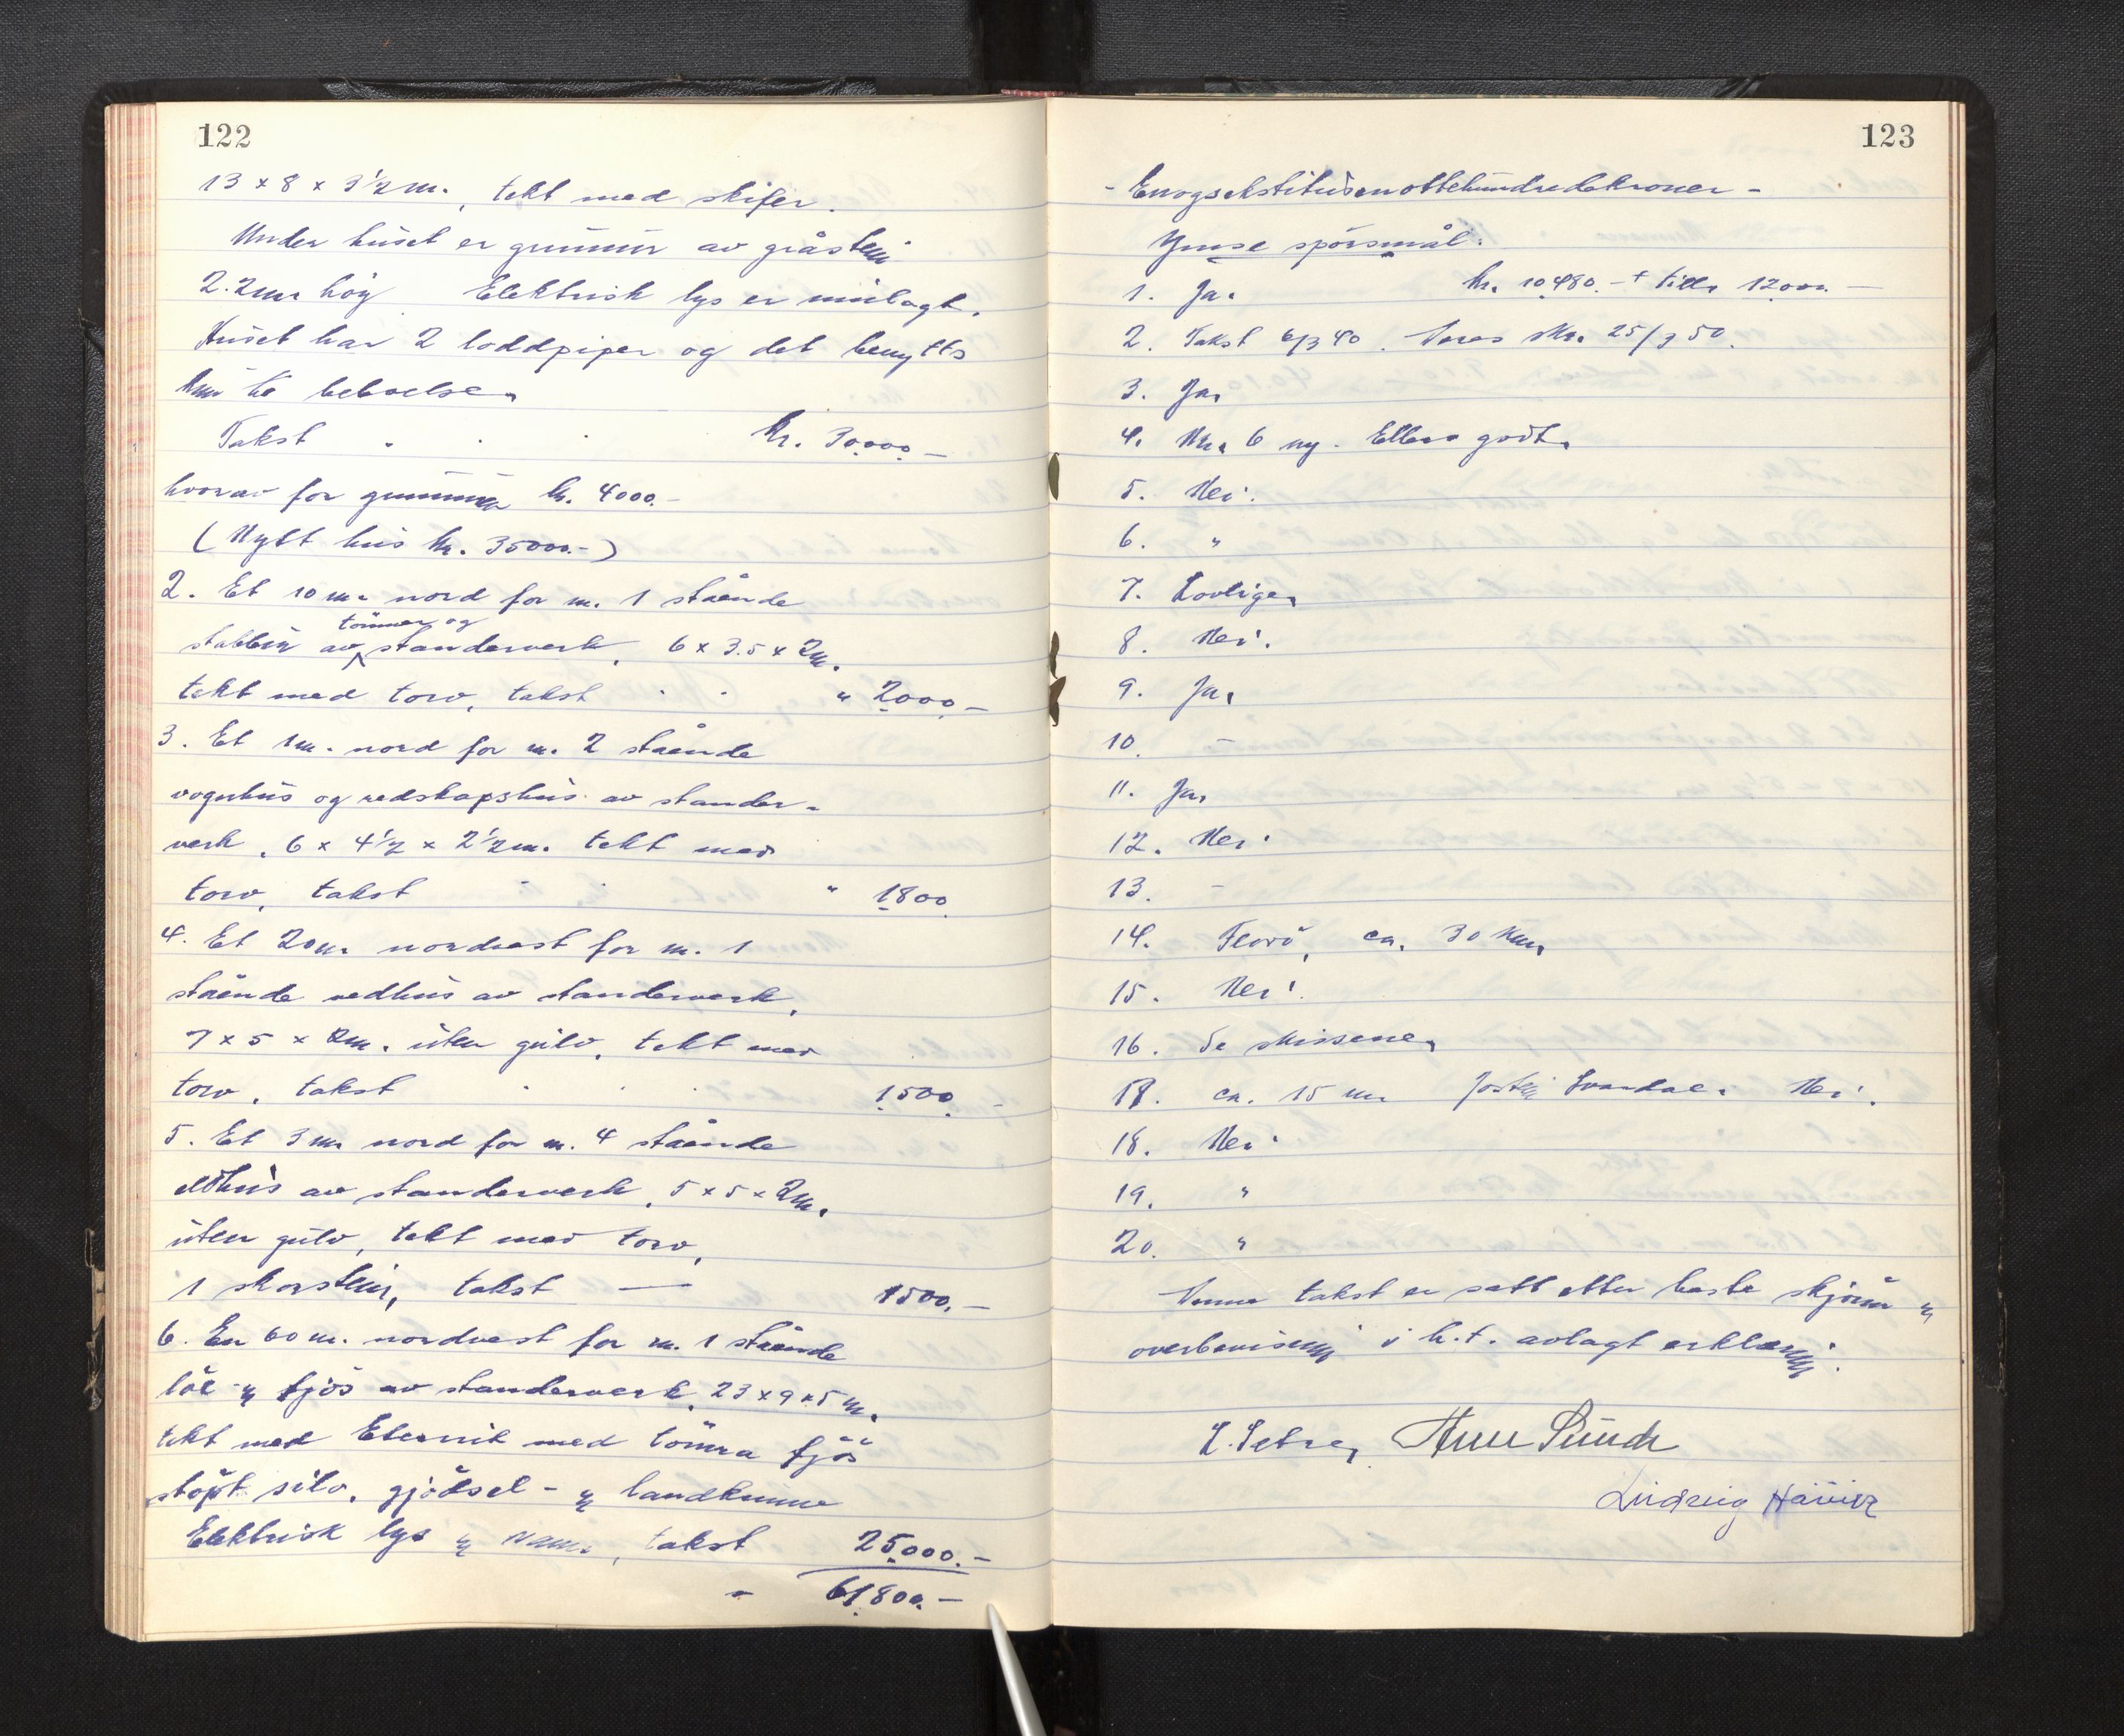 122
13 x 8 x 3½ m., tekt med skifer.
Under huset er grunnmur av gråstein
2.2 m. høy Elektrisk lys er innlagt.
Huset har 2 loddpiper og det benyttes
kun til beboelse.
Takst . . . kr. 30.000.-
hvorav for grunnmur kr. 4000.-
(Nytt hus kr. 35000.-)
2. Et 10 m. nord for m. 1 stående
tømmer og
stabbur av standerverk, 6 x 3.5 x 2m.
tekt med torv, takst . . " 2000.-
3. Et 1m. nord for m. 2 stående
vognhus og redskapshus av stander-
verk, 6 x 4½ x 2½ m. tekt med
torv, takst " 1800.
4. Et 20m. nordvest for m. 1
stående vedhus av standerverk,
7 x 5 x 2m. uten gulv, tekt med
torv, takst . . . 1.500.-
5. Et 3 m. nord for m. 4 stående
eldhus av standerverk, 5 x 5 x 2m.
uten gulv, tekt med torv,
1 skorstein, takst — 1500.-
6. En 60 m. nordvest for m. 1 stående
løe og fjøs av standerverk, 23 x 9 x 5 m.
tekt med Eternit med tømra fjøs
støpt silo, gjødsel- og landkumme
Elektrisk lys og vann, takst 25.000.-
" 61.800.-
123
- Enogsekstitusenottehundredekroner -
Ymse spørsmål.
1. Ja. kr. 10.480.- + till. 12.000.-
2. Takst 6/3 40. Vores skr. 25/3 50.
3. Ja.
4. Nr. 6 ny. Ellers godt.
5. Nei.
6. "
7. Lovlige.
8. Nei.
9. Ja.
10. -
11. Ja.
12. Nei.
13. -
14. Florø, ca. 30 km.
15. Nei.
16. Se skissene.
17. ca. 15 m. Jostein Svardal. Nei.
18. Nei.
19. "
20. "
Denne takst er satt etter beste skjønn og
overbevisning i h.t. avlagt erklæring.
Sunde
Ludvig